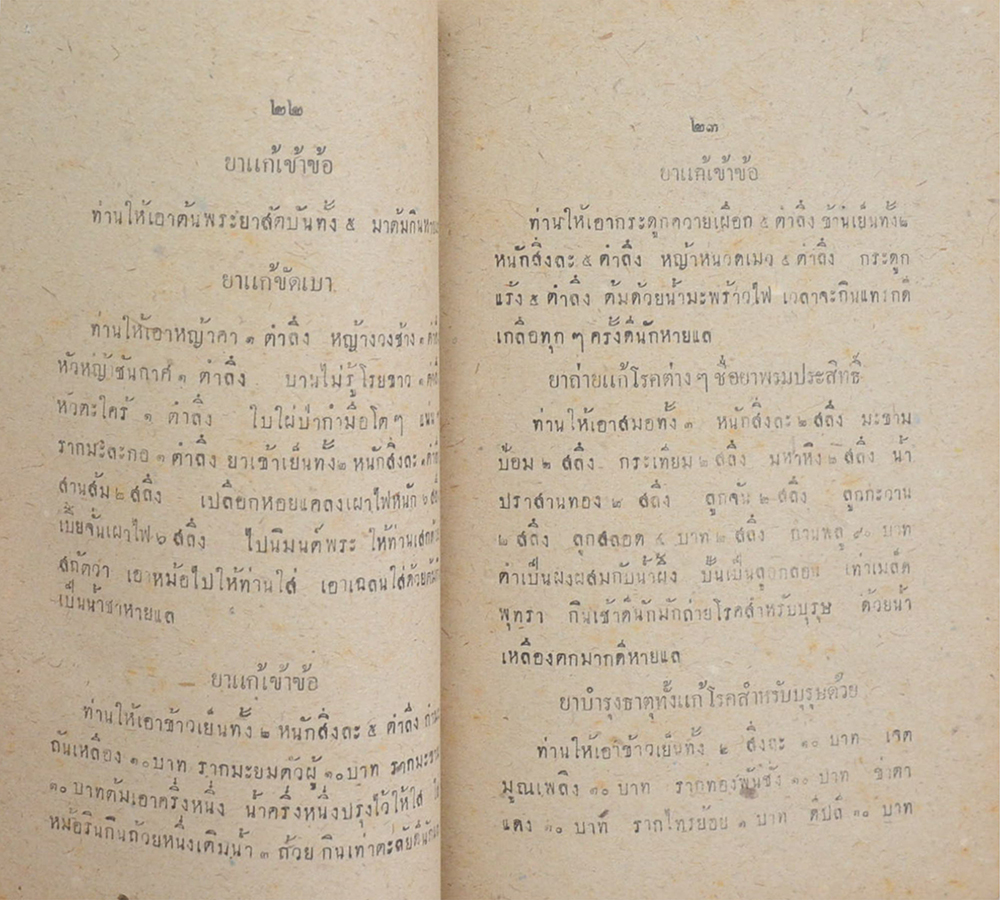 ๒๒
ยาแก้เข้าข้อ
ท่านให้เอาต้นพระยาสัตบันทั้ง ๕ มาต้มกิน
ยาแก้ขัดเบา
ท่านให้เอาหญ้าคา ๑ ตำลึง หญ้างวงช้าง ๑
หัวหญ้าชันกาศ ๑ ตำลึง บานไม่รู้โรยขาว ๑
หัวตะไคร้ ๑ ตำลึง ใบไผ่ป่ากำมือโตๆ
รากมะละกอ ๑ ตำลึง ยาเข้าเย็นทั้ง๒ หนักสิ่งละ ๑
สานส้ม ๒ สลึง เปลือกหอยแคลงเผาไฟหนัก ๖
เบี้ยจั่นเผาไฟ ๖ สลึง ไปนิมนต์พระ ให้ท่านเสก
สกัดว่า เอาหม้อไปให้ท่านใส่ เอาเฉลนใส่ด้วย
เป็นน้ำชาหายแล
ยาแก้เข้าข้อ
ท่านให้เอาข้าวเย็นทั้ง ๒ หนักสิ่งละ ๕ ตำลึง
ถันเหลือง ๑๐ บาท รากมะยมตัวผู้ ๑๐ บาท
๑๐ บาทต้มเอาครึ่งหนึ่ง น้ำครึ่งหนึ่งปรุงไว้ให้ใส่
หม้อรินกินถ้วยหนึ่งเติมน้ำ ๓ ถ้วย กินเท่าตะลัย
๒๓
ยาแก้เข้าข้อ
ท่านให้เอากระดูกควายเผือก ๕ ตำลึง ข้าเย็นทั้ง๒
หนักสิ่งละ ๕ ตำลึง หญ้าหนวดเมว ๕ ตำลึง กระดูก
แร้ง ๕ ตำลึง ต้มด้วยน้ำมะพร้าวไฟ เวลาจะกินแทรกดี
เกลือทุก ๆ ครั้งดีนักหายแล
ยาถ่ายแก้โรคต่าง ๆ ชื่อยาพรมประสิทธิ์
ท่านให้เอาสมอทั้ง ๓ หนักสิ่งละ ๒ สลึง มะขาม
ป้อม ๒ สลึง กระเทียม ๒ สลึง มหาหิง ๖ สลึง น้ำ
ปราสานทอง ๒ สลึง ลูกจัน ๒ สลึง ลูกกะวาน
๒ สลึง ลูกสลอด ๕ บาท ๒ สลึง กานพลู ๙๐ บาท
ตำเป็นผงผสมกับน้ำผึ้ง ปั้นเป็นลูกกลอน เท่าเมล็ด
พุทรา กินเช้าดีนักมักถ่ายโรคสำหรับบุรุษ ด้วยน้ำ
เหลืองตกมากดีหายแล
ยาบำรุงธาตุทั้งแก้โรคสำหรับบุรุษด้วย
ท่านให้เอาข้าวเย็นทั้ง ๒ สิ่งละ ๑๐ บาท เจต
มูณเพลิง ๑๐ บาท รากทองพันชั่ง ๑๐ บาท ข่าตา
แดง ๑๐ บาท รากไทรย้อย ๑ บาท ดีปลี ๑๐ บาท